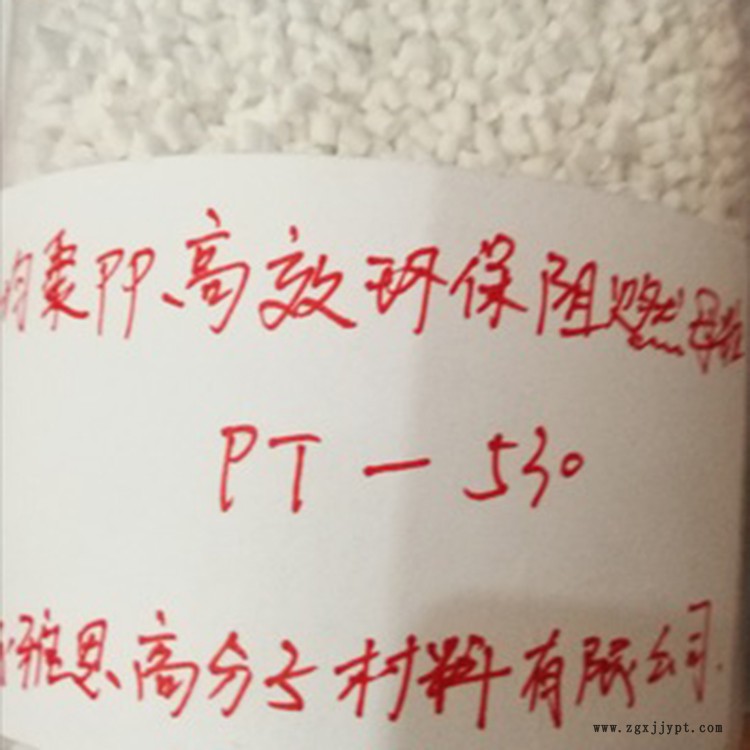 均聚PP、高效环保阻燃母粒
PT-530
雅恩高分子材料有限公司.
www.zgxjjypt.com